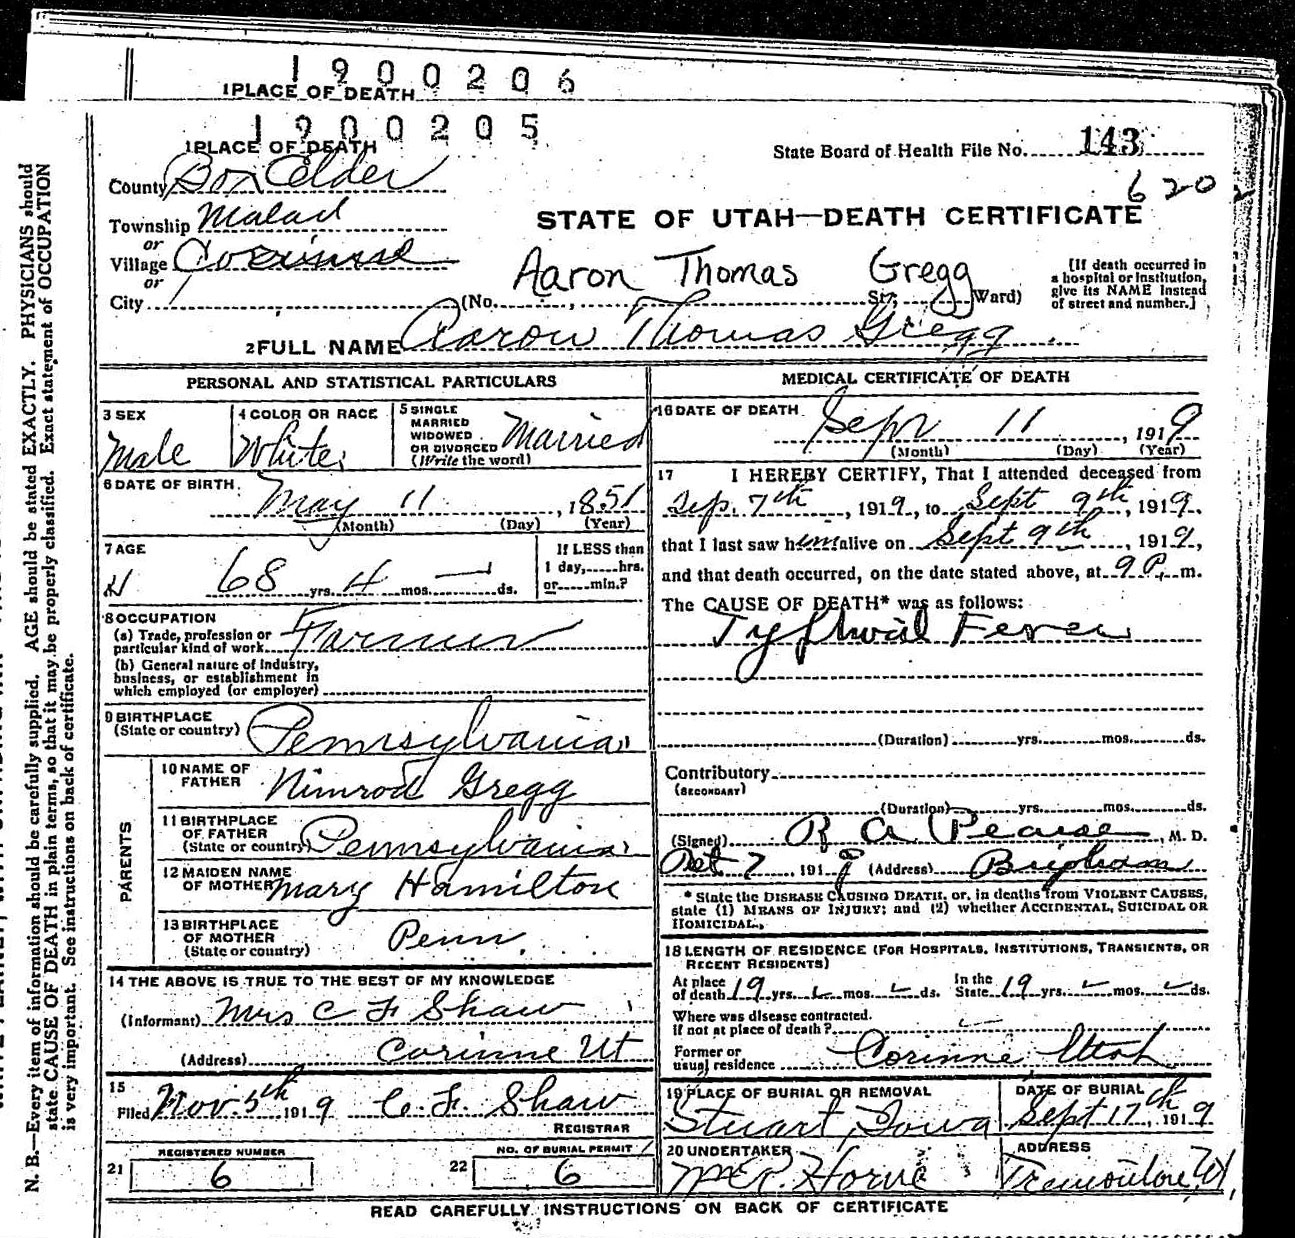 1900206
1 PLACE OF DEATH
1900205
1 PLACE OF DEATH
State Board of Health File No. 143
620
County Box Elder
Township Malad
or
Village Corinne
or
City (No. , St; Ward)
STATE OF UTAH—DEATH CERTIFICATE
Aaron Thomas Gregg
[If death occurred in
a hospital or institution,
give its NAME instead
of street and number.]
2 FULL NAME Aaron Thomas Gregg
PERSONAL AND STATISTICAL PARTICULARS
3 SEX
Male
4 COLOR OR RACE
White
5 SINGLE
MARRIED
WIDOWED
OR DIVORCED
(Write the word)
Married
6 DATE OF BIRTH
May 11, 1851
(Month) (Day) (Year)
7 AGE
68 yrs. 4 mos. — ds.
If LESS than
1 day, hrs.
or min.?
8 OCCUPATION
(a) Trade, profession or
particular kind of work Farmer
(b) General nature of industry,
business, or establishment in
which employed (or employer)
9 BIRTHPLACE
(State or country) Pennsylvania
PARENTS
10 NAME OF
FATHER Nimrod Gregg
11 BIRTHPLACE
OF FATHER
(State or country) Pennsylvania
12 MAIDEN NAME
OF MOTHER Mary Hamilton
13 BIRTHPLACE
OF MOTHER
(State or country) Penn.
14 THE ABOVE IS TRUE TO THE BEST OF MY KNOWLEDGE
(Informant) Mrs C F Shaw
(Address) Corinne Ut
15
Filed Nov. 5th 1919 C. F. Shaw
REGISTRAR
REGISTERED NUMBER
21 6
NO. OF BURIAL PERMIT
22 6
MEDICAL CERTIFICATE OF DEATH
16 DATE OF DEATH
Sept 11, 1919
(Month) (Day) (Year)
17 I HEREBY CERTIFY, That I attended deceased from
Sep. 7th, 1919, to Sept 9th, 1919,
that I last saw him alive on Sept 9th, 1919,
and that death occurred, on the date stated above, at 9 P. m.
The CAUSE OF DEATH* was as follows:
Typhoid Fever
(Duration) yrs. mos. ds.
Contributory
(SECONDARY)
(Duration) yrs. mos. ds.
(Signed) R A Pearse, M. D.
Oct 7 1919 (Address) Brigham
* State the DISEASE CAUSING DEATH, or, in deaths from VIOLENT CAUSES,
state (1) MEANS OF INJURY; and (2) whether ACCIDENTAL, SUICIDAL OR
HOMICIDAL.
18 LENGTH OF RESIDENCE (FOR HOSPITALS, INSTITUTIONS, TRANSIENTS, OR
RECENT RESIDENTS)
At place
of death 19 yrs. mos. ds.
In the
State 19 yrs. mos. ds.
Where was disease contracted.
if not at place of death?
Former or
usual residence Corinne Utah
19 PLACE OF BURIAL OR REMOVAL
Stuart, Iowa
DATE OF BURIAL
Sept 17th, 1919
20 UNDERTAKER
ADDRESS
Tremonton, Ut,
READ CAREFULLY INSTRUCTIONS ON BACK OF CERTIFICATE
N. B.—Every item of information should be carefully supplied. AGE should be stated EXACTLY. PHYSICIANS should
state CAUSE OF DEATH in plain terms, so that it may be properly classified. Exact statement of OCCUPATION
is very important. See instructions on back of certificate.